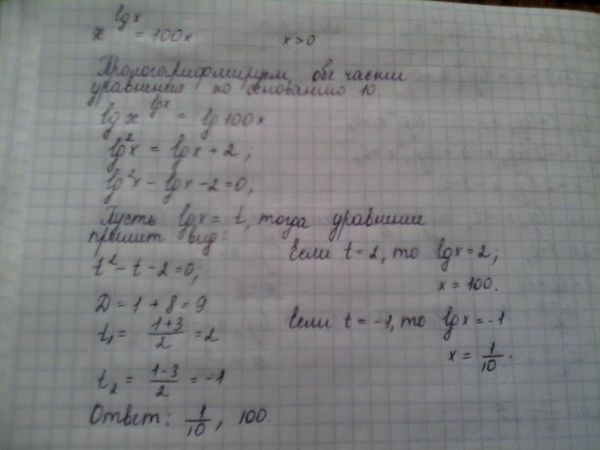 x^lgx = 100x   x>0
Прологарифмируем обе части
уравнения по основанию 10.
lg x^lgx = lg 100x
lg²x = lgx + 2;
lg²x - lgx - 2 = 0;
Пусть lgx = t, тогда уравнение
примет вид:
t² - t - 2 = 0;
D = 1 + 8 = 9
t₁ = (1+3)/2 = 2
t₂ = (1-3)/2 = -1
Если t = 2, то lgx = 2;
x = 100.
Если t = -1, то lgx = -1
x = 1/10.
Ответ: 1/10, 100.